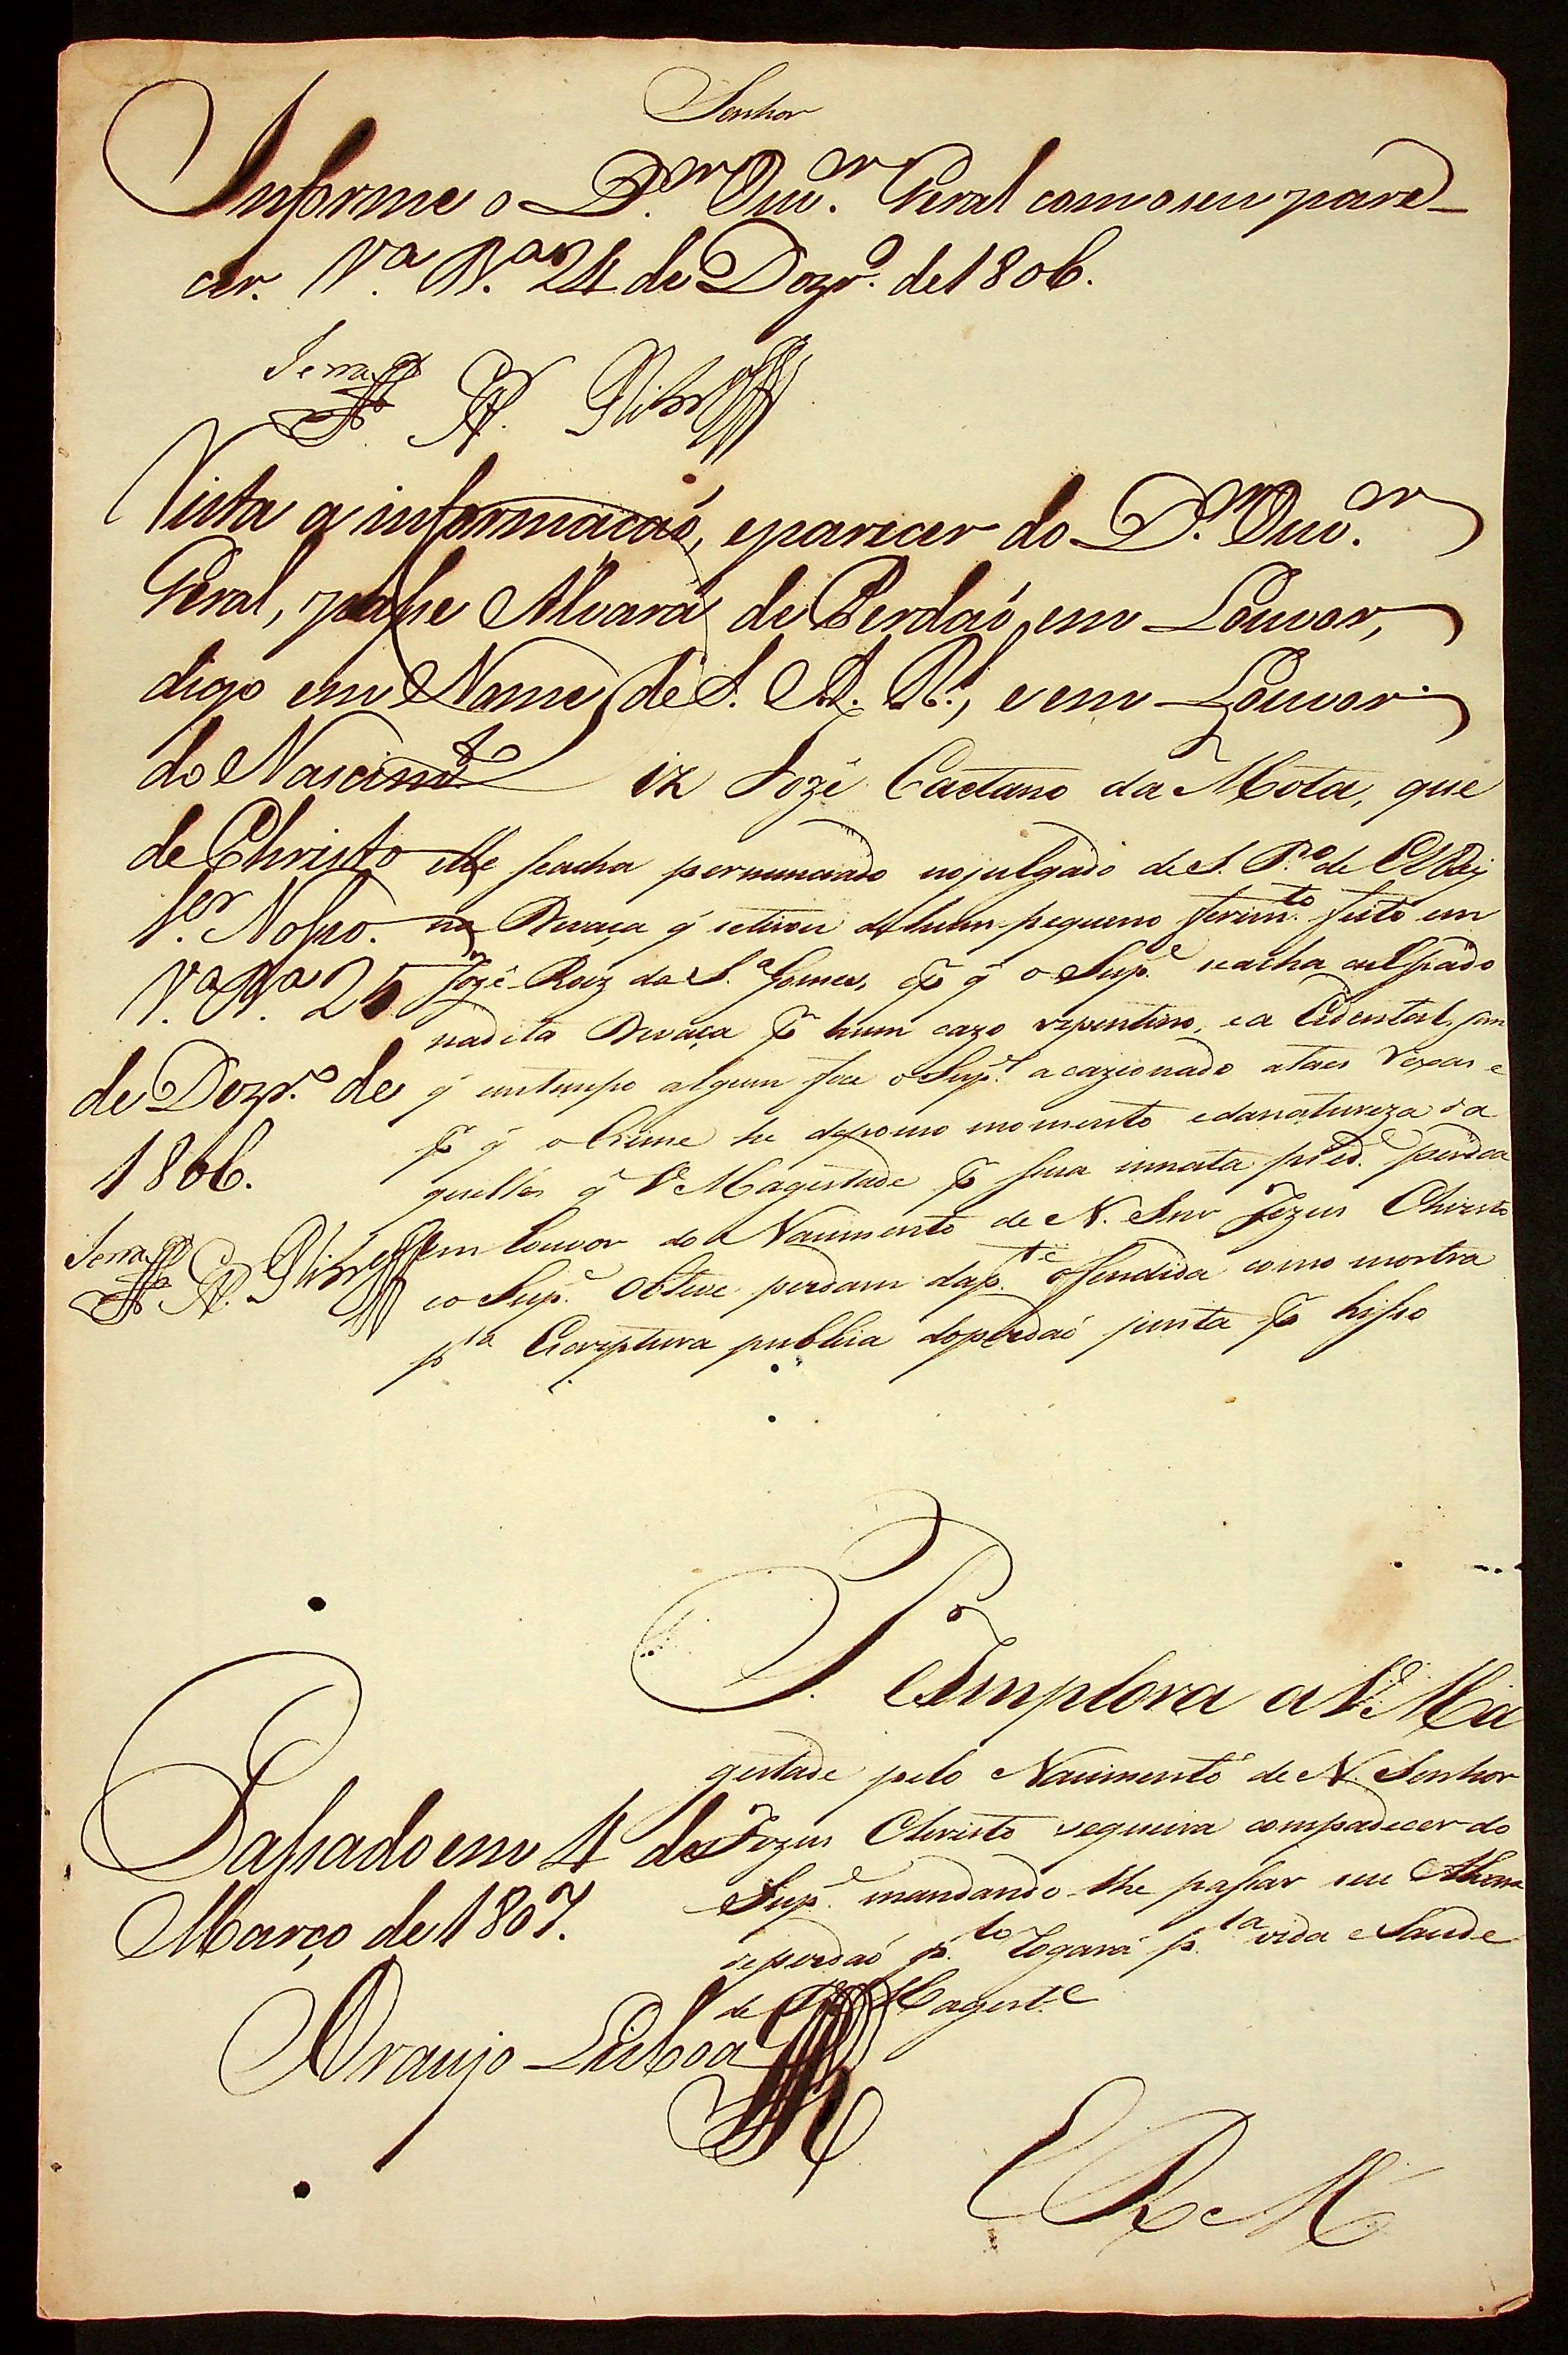 Senhor
Informe o D.or Ouv.or Geral com o seu pare-
cer. V.a B.a 24 de Dezr.o de 1806.
Serra
Vista a informacaó, e parecer do D.or Ouv.or
Geral, passe Alvará de Perdaó em Louvor,
digo em Nome de S. A. R.l, e em Louvor
do Nascim.to
de Christo
S.or Nosso.
V.a B.a 25
de Dezr.o de
1806.
Serra
iz Jozé Caetano da Mota, que
elle se acha pernunciado no julgado de S. P.o de El Rey
na Devaça q̃ se tirou de hum pequeno ferim.to feito em
Jozé Roiz da S.a Gomes, p̃ q̃ o Sup.e se acha culpado
na dita Devaça p̃ hum cazo repentino, e a Cidental, sem
q̃ em tempo algum foce o Sup.e acazionado a taes Rexas e
p̃ q̃ o Crime he de pouco momento e da natureza da
quelles q̃ V. Magestade p̃ sua innata pied.e perdoa
em Louvor do Nacimento de N. Snr Jezus Christo
e o Sup.e obteve perdam da p.te offendida como mostra
p.la Escreptura publica do perdaó junta p̃ hisso
P.
Implora a V. Ma
gestade pelo Nacimento de N. Senhor
Jezus Christo se queira compadecer do
Sup.e mandando-lhe passar seu Alvara
de perdaó p.lo Rogará p.la vida e Saude
de V. Magest.e
Passado em 4 de
Março de 1807.
Araujo Lisboa
E R M